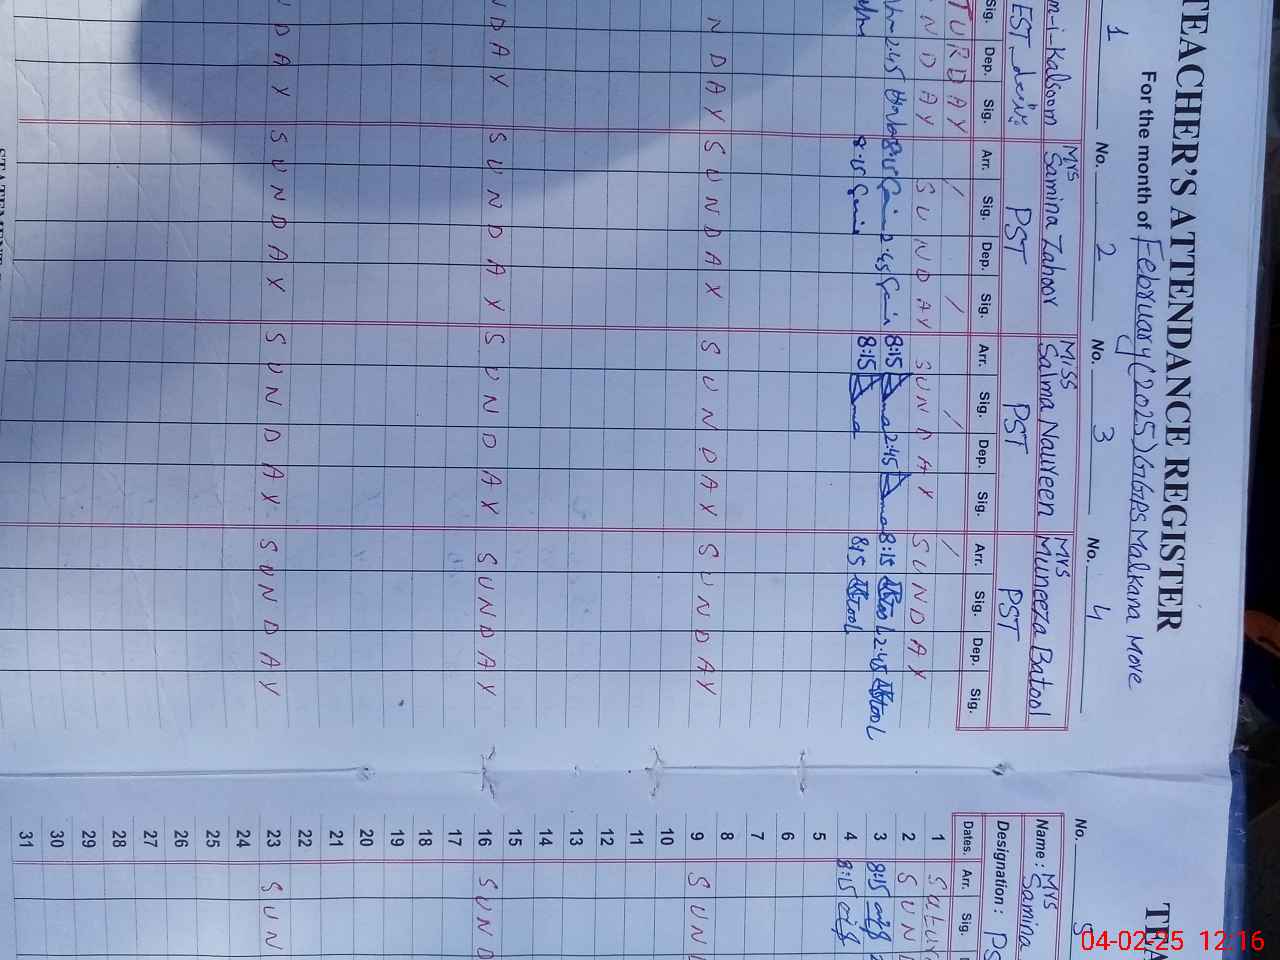 TEACHER'S ATTENDANCE REGISTER
For the month of February (2025) GGPS Malkana More
1 No. 2 No. 3 No. 4
m-i-Kalsoom Mrs Samina Zahoor Miss Salma Naureen Mrs Muneeza Batool
EST PST PST PST
Sig. Dep. Sig. Arr. Sig. Dep. Sig. Arr. Sig. Dep. Sig. Arr. Sig. Dep. Sig.
TURDAY / / / /
NDAY SUNDAY SUNDAY SUNDAY
2:45 8:15 2:45 8:15 2:45 8:15 Batool 2:45 Batool
8:15 8:15 815 Batool
NDAY SUNDAY SUNDAY SUNDAY
NDAY SUNDAY SUNDAY SUNDAY
NDAY SUNDAY SUNDAY SUNDAY
TEA
No. 5
Name : Mrs Samina
Designation : PS
Dates. Arr. Sig. D
1 Satur
2 SUN
3 8:15
4 8:15
5
6
7
8
9 SUN
10
11
12
13
14
15
16 SUND
17
18
19
20
21
22
23 SUN
24
25
26
27
28
29
30
31
04-02-25 12:16